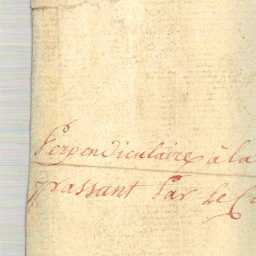 Perpendiculaire à la
passant Par le C